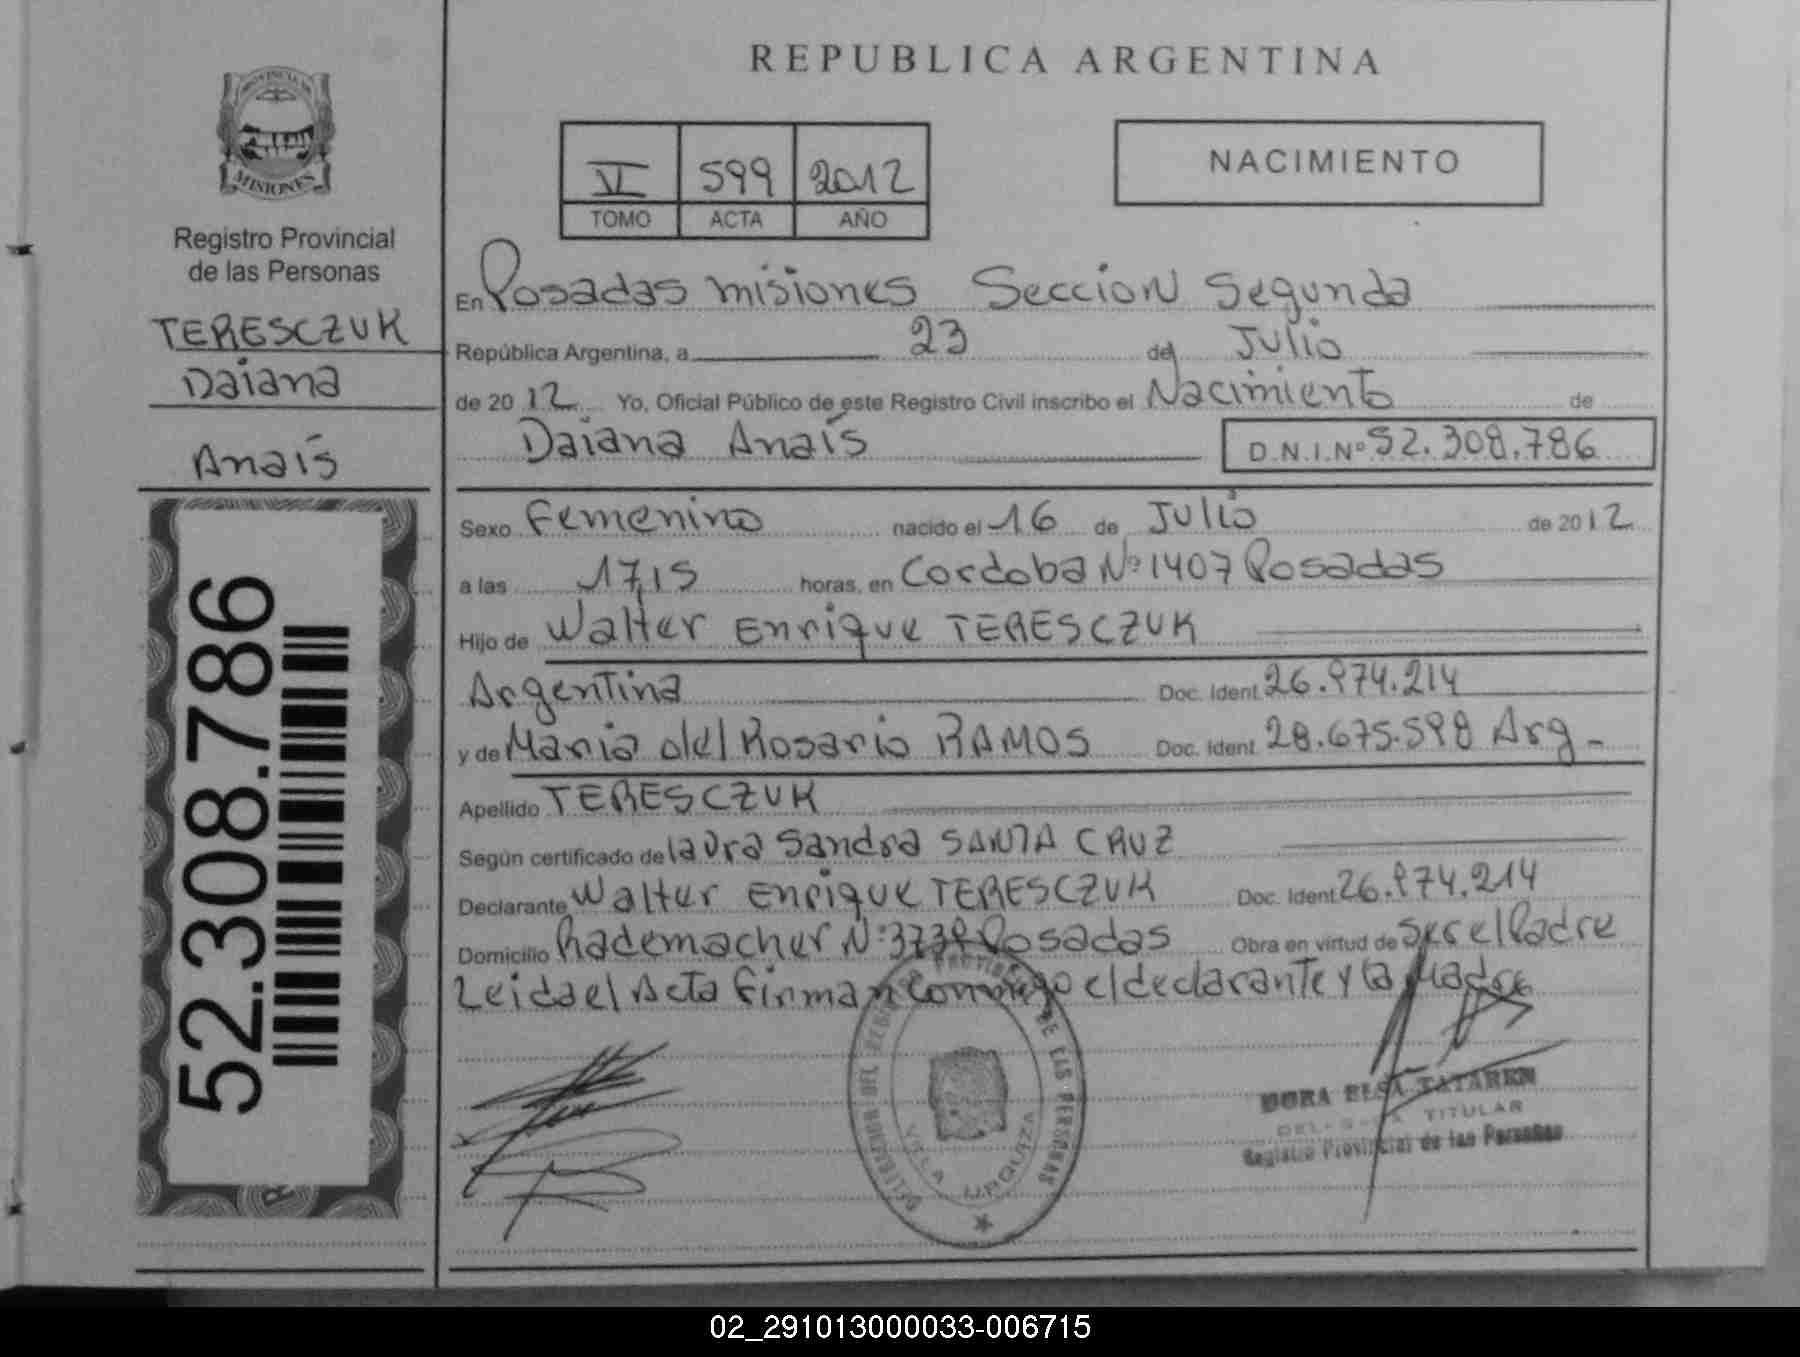 REPUBLICA ARGENTINA
PROVINCIA DE
MISIONES
Registro Provincial
de las Personas
TERESCZUK
Daiana
Anaís
52.308.786
VI 599 2012
TOMO ACTA AÑO
NACIMIENTO
En Posadas misiones Seccion Segunda
República Argentina, a 23 del Julio
de 2012 Yo, Oficial Público de este Registro Civil inscribo el Nacimiento de
Daiana Anaís D.N.I.Nº 52.308.786
Sexo Femenino nacido el 16 de Julio de 2012
a las 17,15 horas, en Cordoba Nº 1407 Posadas
Hijo de Walter Enrique TERESCZUK
Argentina Doc. Ident. 26.974.214
y de Maria del Rosario RAMOS Doc. Ident. 28.675.598 Arg -
Apellido TERESCZUK
Según certificado de laura Sandra SANTA CRUZ
Declarante Walter Enrique TERESCZUK Doc. Ident. 26.974.214
Domicilio Rademacher Nº Posadas Obra en virtud de Ser el Padre
Leida el Acta firman conmigo el declarante y la Madre
DEL REGISTRO PROVINCIAL DE LAS PERSONAS
VILLA URQUIZA
DORA ELSA TATAREN
TITULAR
Registro Provincial de las Personas
02_291013000033-006715